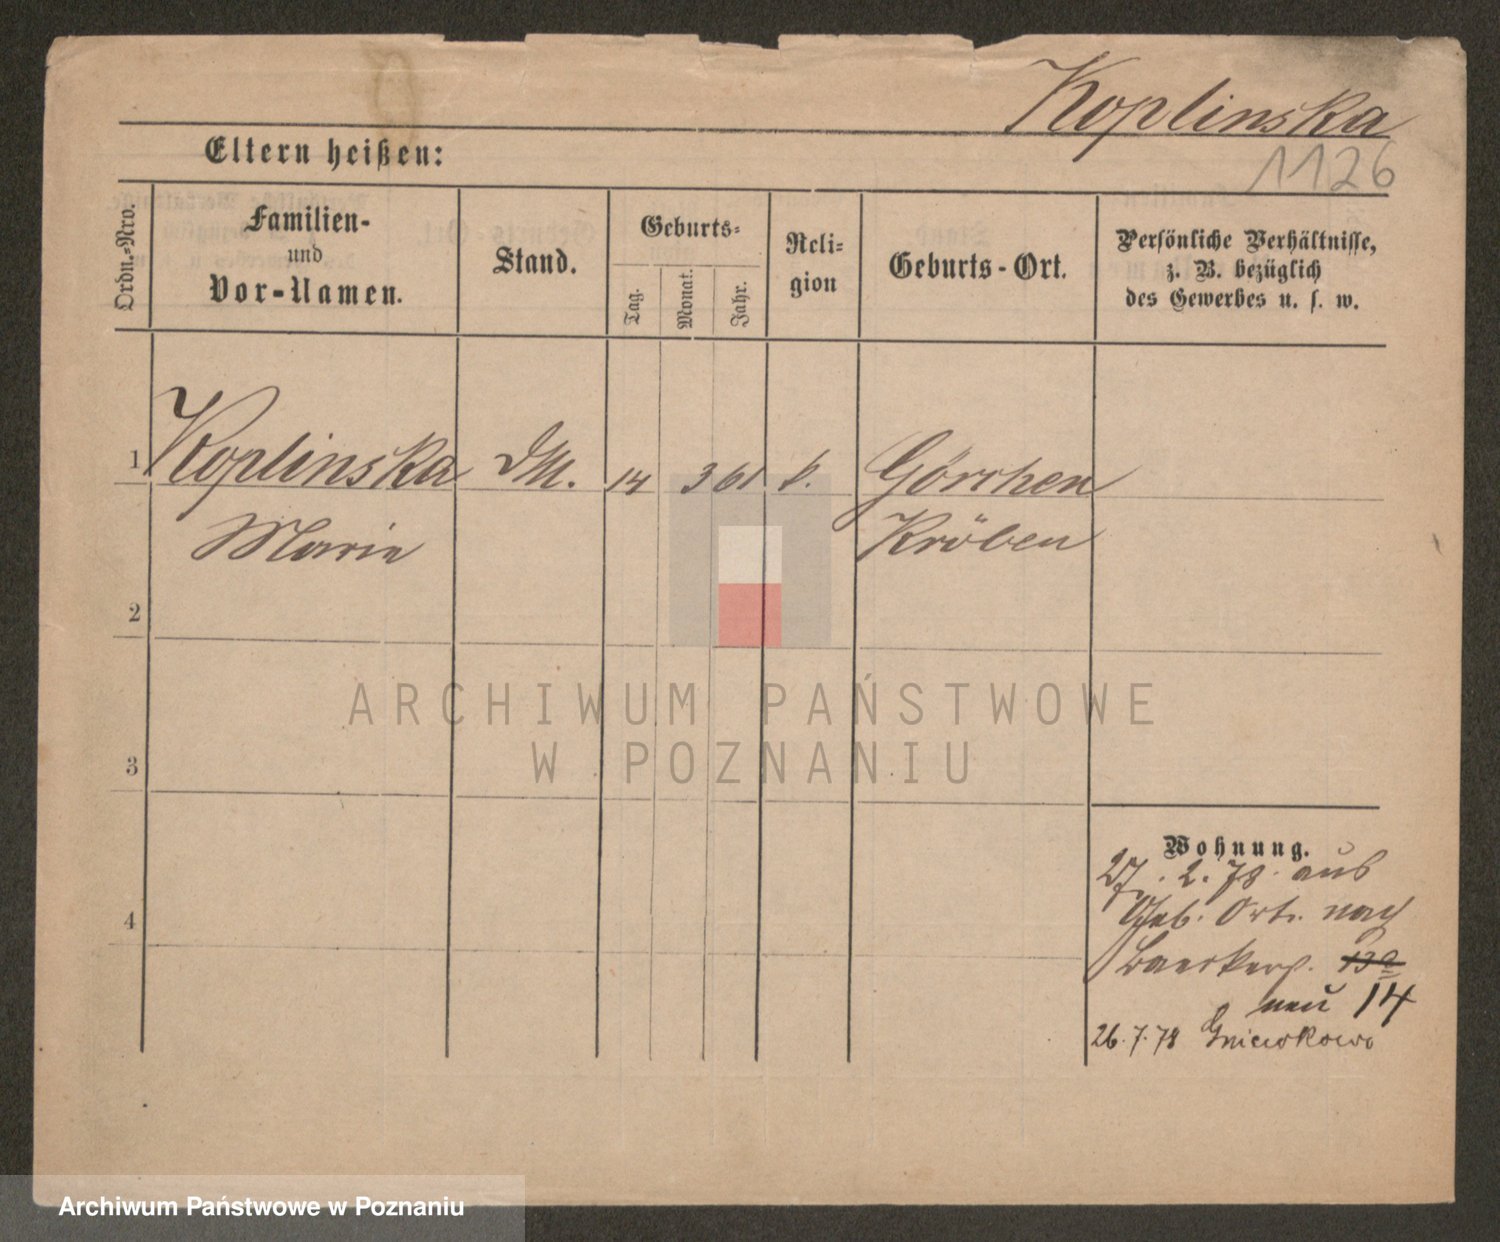 Koplinska
1126
Eltern heißen:
Ordn.-Nro.
Familien-
und
Vor-Namen.
Stand.
Geburts-
Tag.
Monat.
Jahr.
Reli-
gion
Geburts-Ort.
Persönliche Verhältnisse,
z. B. bezüglich
des Gewerbes u. s. w.
1 Koplinska DM. 14 3 61 k. Görchen
Marie Kröben
2
3
4
Wohnung.
27. 2. 78. aus
Geb. Ort. nach
neu 14
26. 7. 78 Gniewkowo
ARCHIWUM PAŃSTWOWE
W POZNANIU
Archiwum Państwowe w Poznaniu